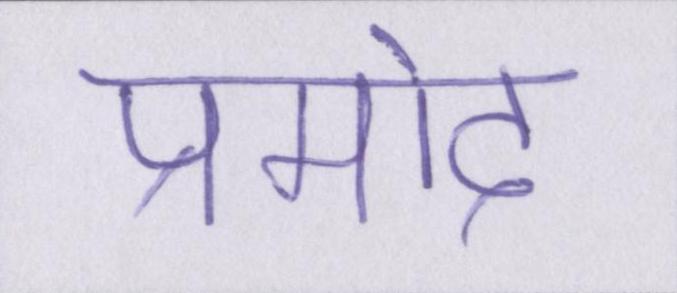 प्रमोद